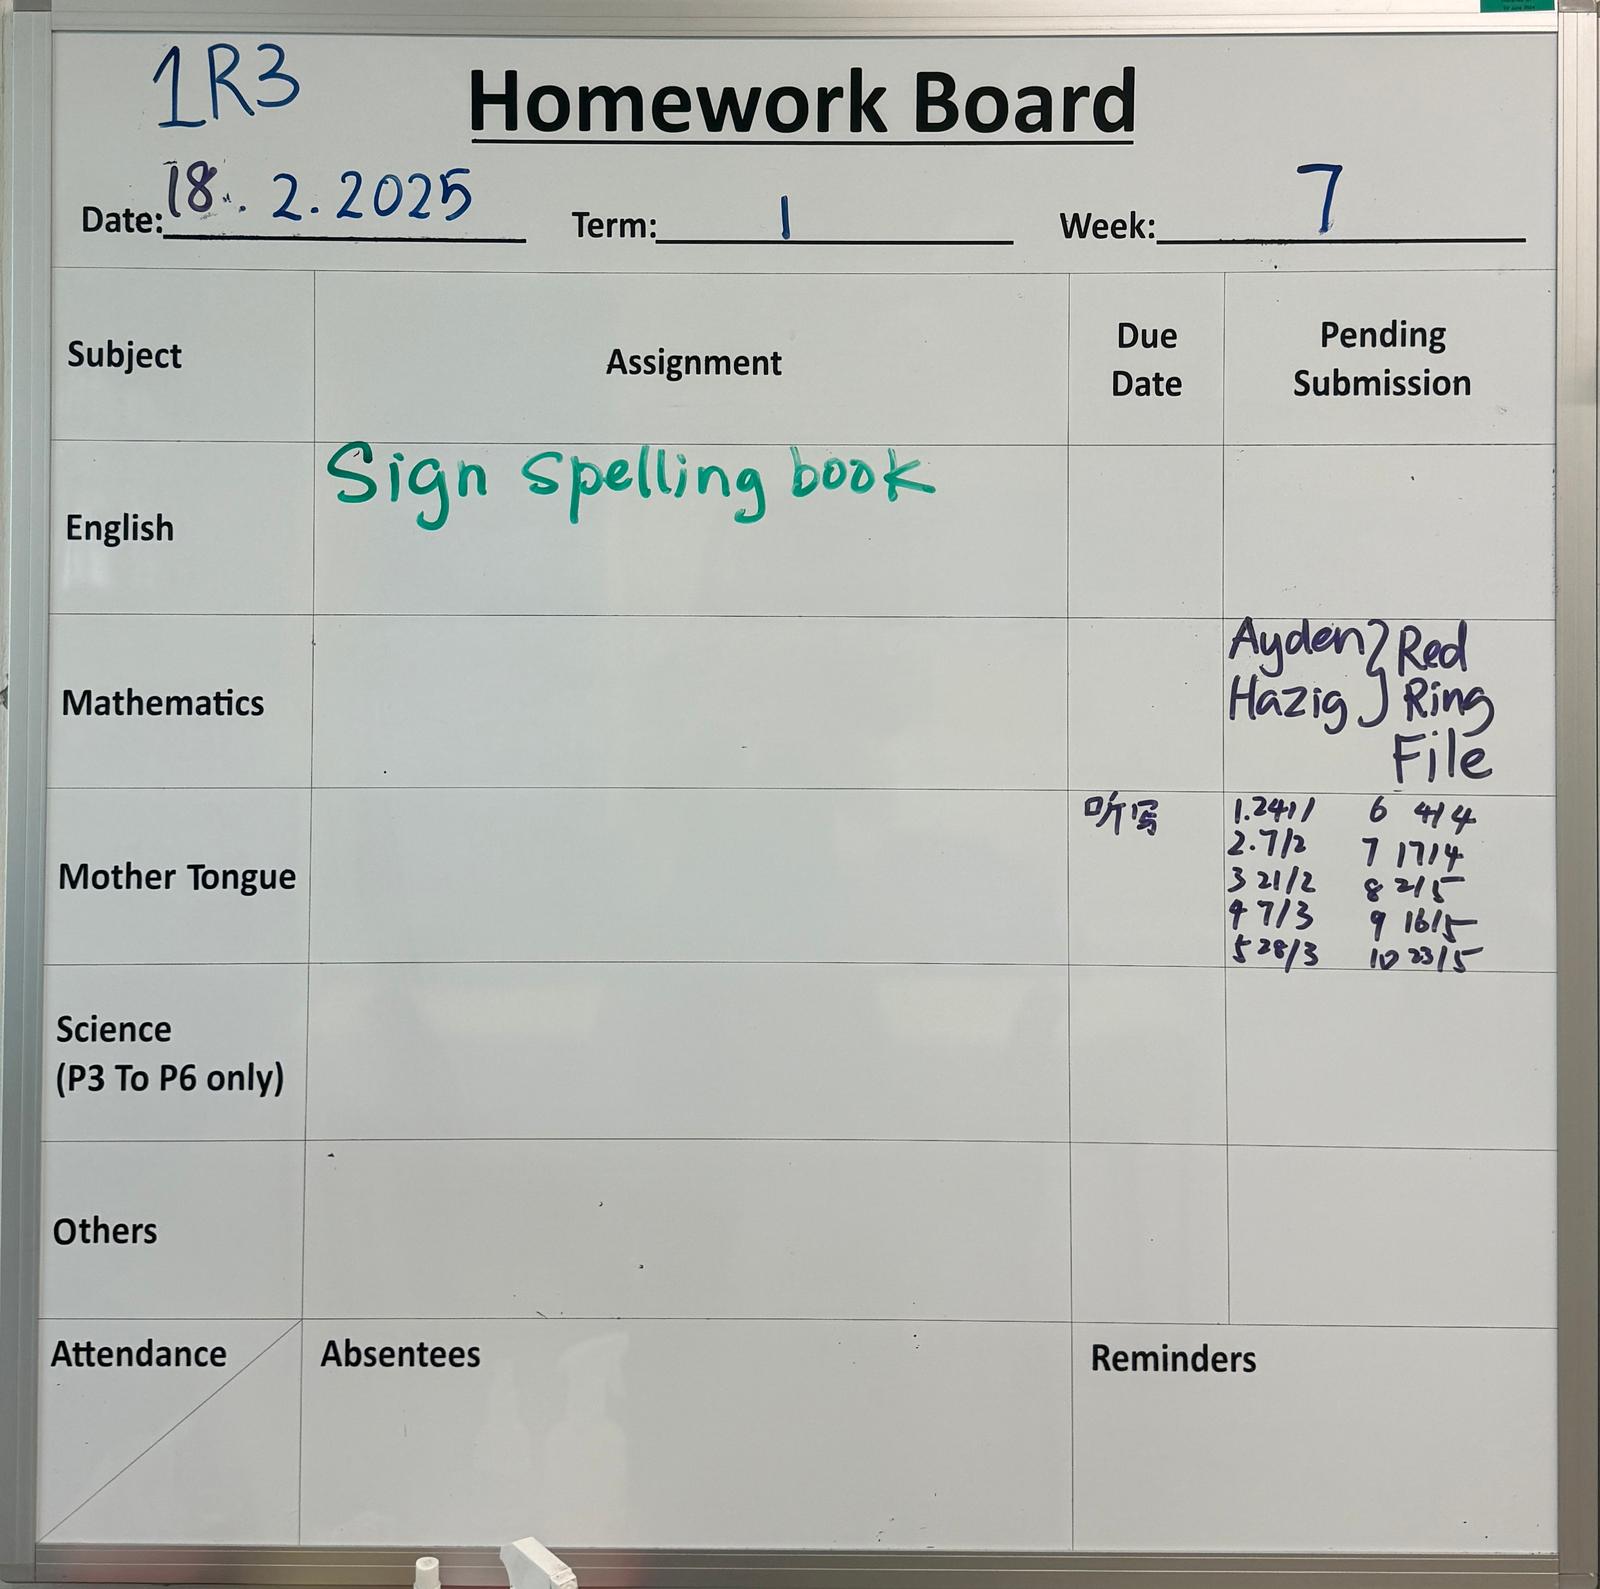 1R3
Homework Board
Date: 18. 2. 2025 Term: 1 Week: 7
Subject Assignment Due Date Pending Submission
English Sign spelling book
Mathematics
Ayden } Red
Hazig } Ring
File
Mother Tongue
听写
1. 24/1 6 4/4
2. 7/2 7 17/4
3 21/2 8 2/5
4 7/3 9 16/5
5 28/3 10 23/5
Science
(P3 To P6 only)
Others
Attendance Absentees Reminders